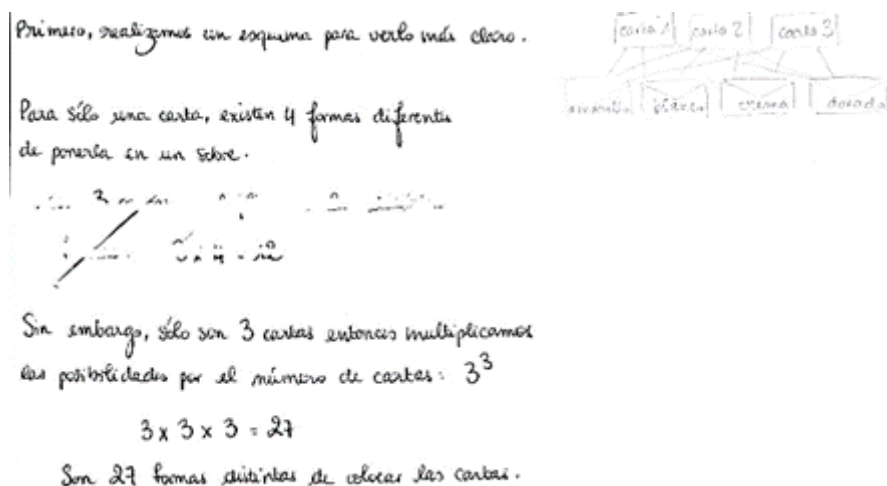 Primero, realizamos un esquema para verlo más claro.
carta 1 carta 2 carta 3
amarillo blanco crema dorado
Para sólo una carta, existen 4 formas diferentes
de ponerla en un sobre.
Sin embargo, sólo son 3 cartas entonces multiplicamos
las posibilidades por el número de cartas: 3³
3 x 3 x 3 = 27
Son 27 formas distintas de colocar las cartas.